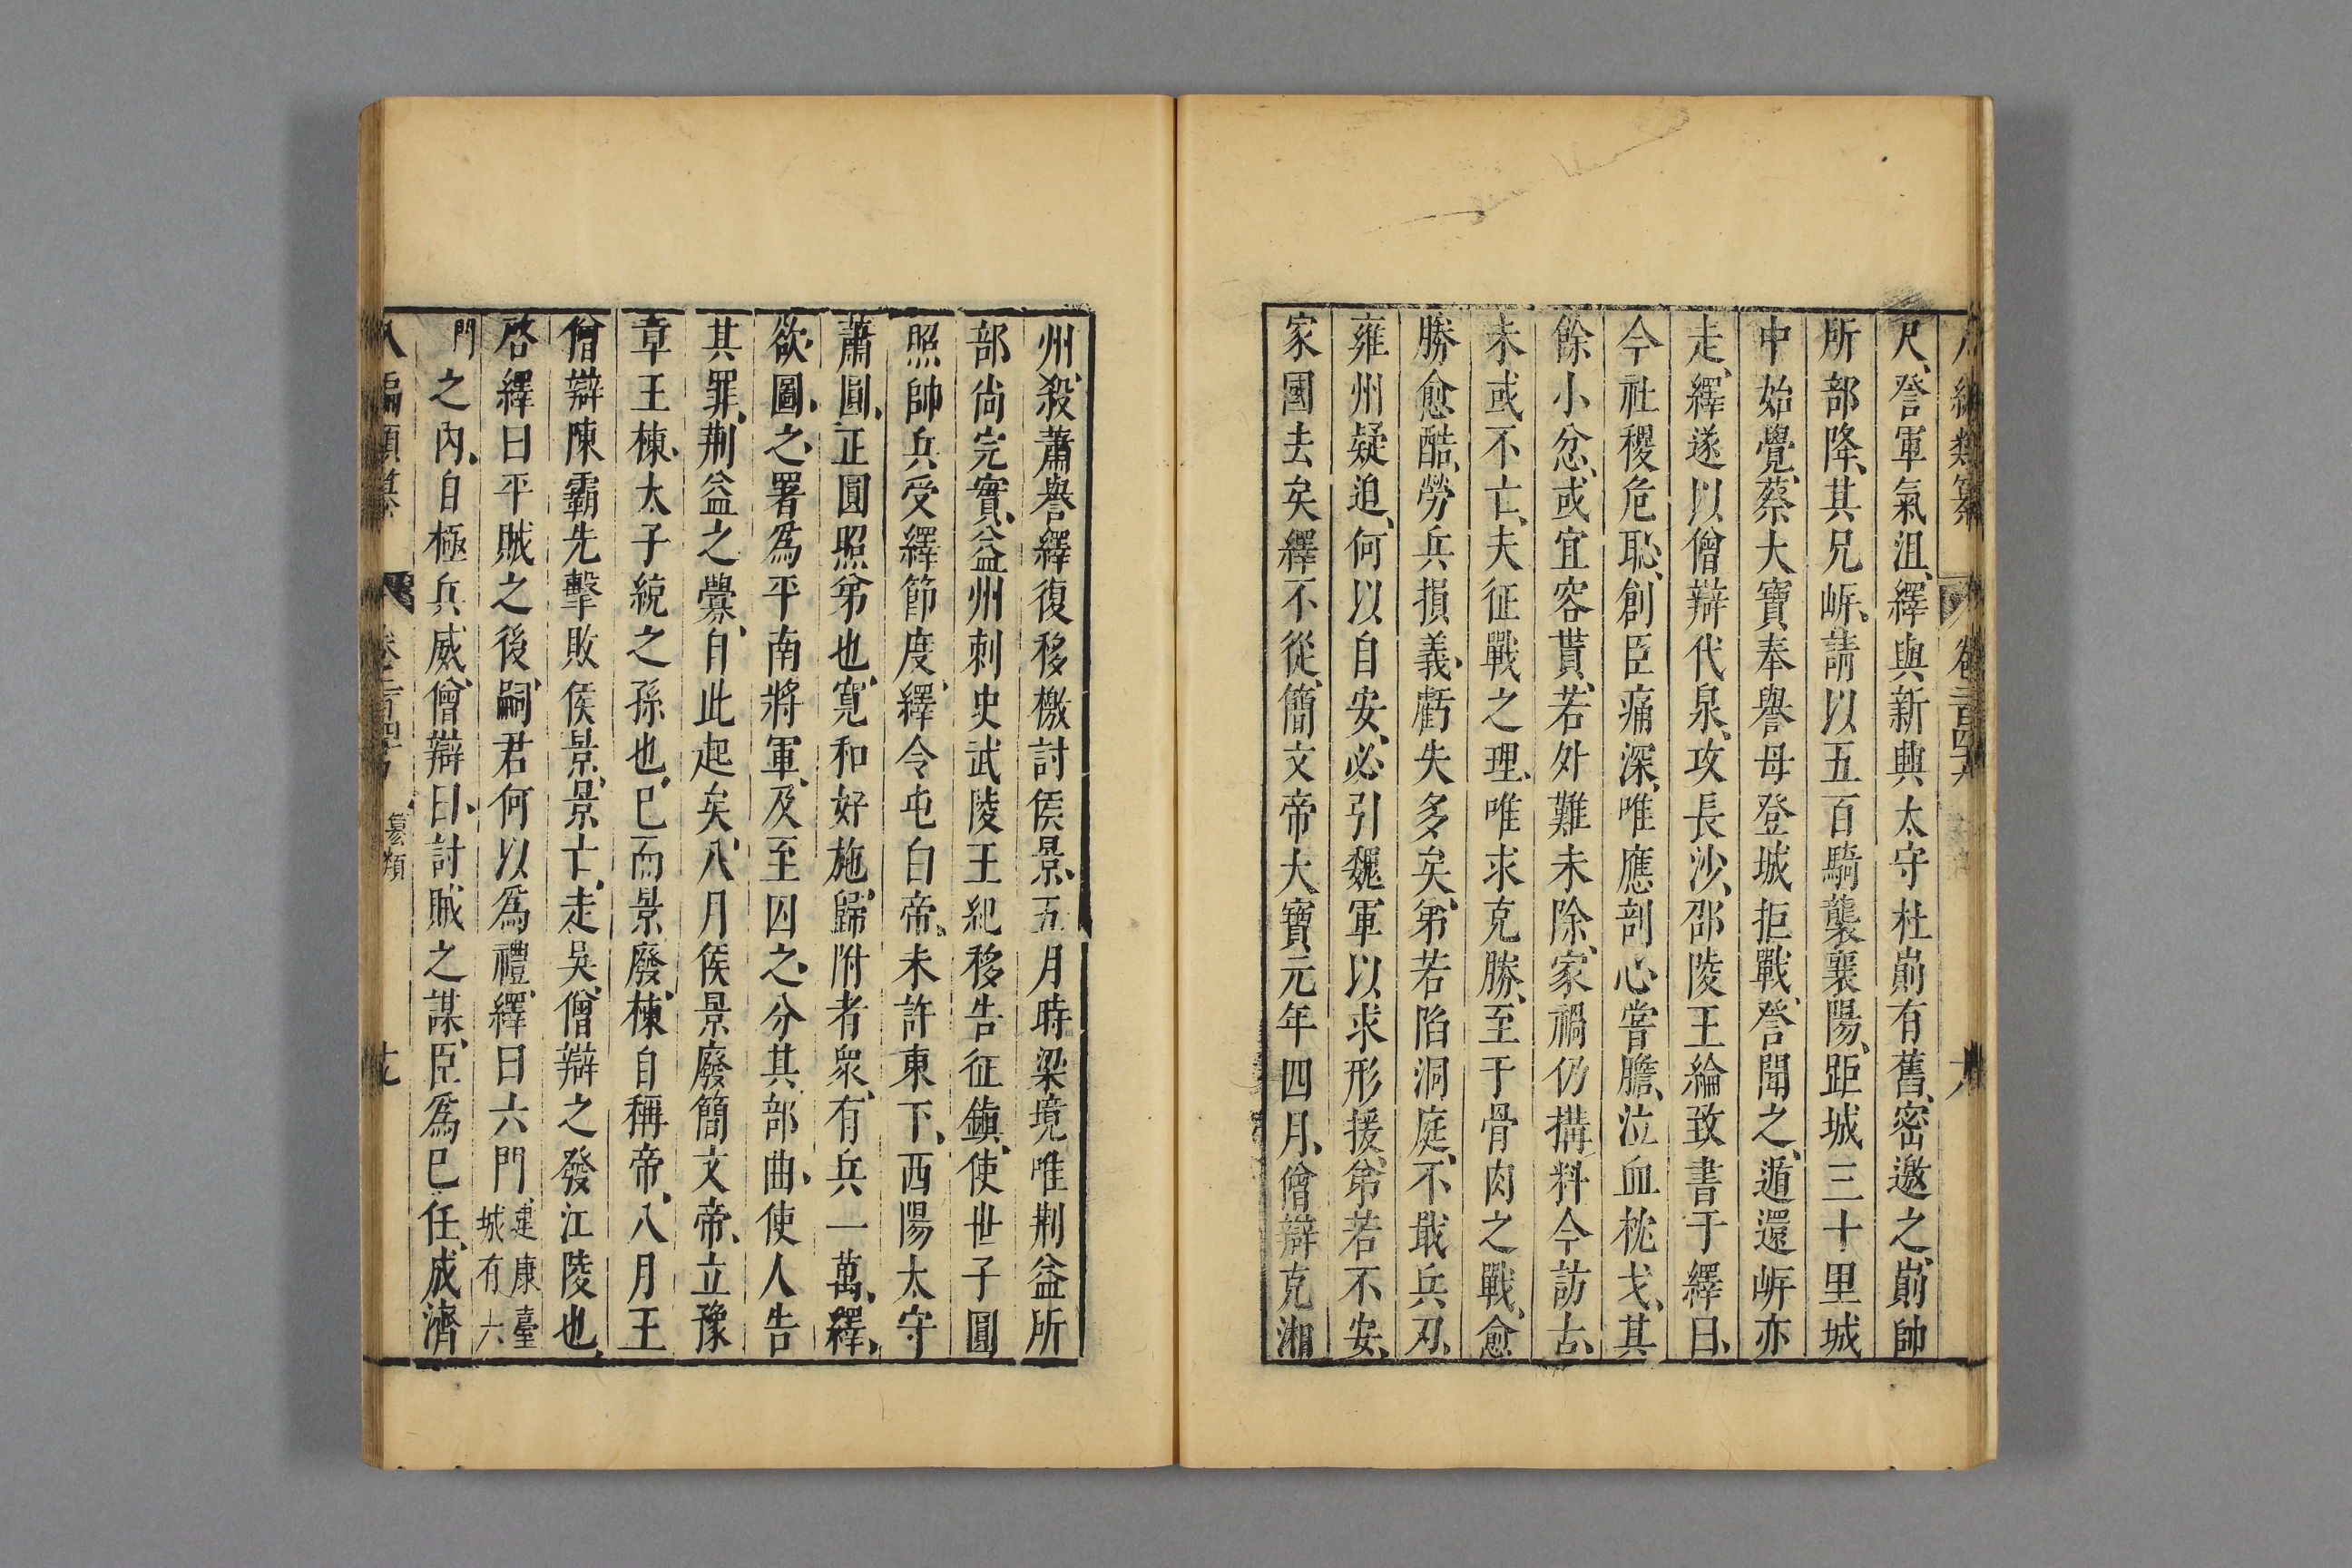 尺、詧軍氣沮、繹與新興太守杜崱有舊、密邀之、崱帥
所部降、其兄岍、請以五百騎襲襄陽、距城三十里城
中始覺、蔡大寶奉詧母登城拒戰、詧聞之、遁還岍亦
走、繹遂以僧辯代泉、攻長沙、邵陵王綸致書于繹曰、
今社稷危恥、創巨痛深、唯應剖心嘗膽、泣血枕戈、其
餘小忿、或宜容貰、若外難未除、家禍仍搆料今訪古、
未或不亡、夫征戰之理、唯求克勝、至于骨肉之戰、愈
勝愈酷、勞兵損義、虧失多矣、弟若陷洞庭、不戢兵刃、
雍州疑迫、何以自安、必引魏軍以求形援、弟若不安、
家國去矣繹不從、簡文帝大寶元年四月、僧辯克湘
州、殺蕭譽繹復移檄討侯景、五月時梁境唯荆益所
部尙完實、益州刺史武陵王紀移告征鎭、使世子圓
照帥兵受繹節度、繹令屯白帝、未許東下、西陽太守
蕭圓、正圓照弟也、寬和好施、歸附者衆、有兵一萬、繹、
欲圖之、署爲平南將軍、及至囚之、分其部曲、使人告
其罪、荆益之釁、自此起矣、八月侯景廢簡文帝、立豫
章王棟、太子統之孫也、已而景廢、棟自稱帝、八月王
僧辯陳霸先擊敗侯景、景亡、走吳、僧辯之發江陵也、
啓繹曰平賊之後、嗣君何以爲禮、繹曰六門建康臺城有六
門之內、自極兵威、僧辯曰、討賊之謀、臣爲巳任、成濟